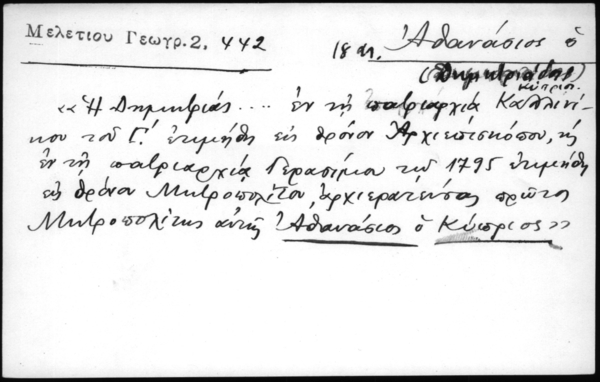 Μελετίου Γεωγρ.2. 442
18 αι. Ἀθανάσιος ὁ
(Δημητριάδος)
Κύπριος
«Ἡ Δημητριάς.... ἐν τῇ πατριαρχίᾳ Καλλινί-
κου τοῦ Γ! ἐτιμήθη εἰς θρόνον Ἀρχιεπισκόπου, κ̀
ἐν τῇ πατριαρχίᾳ Γερασίμου τῷ 1795 ἐτιμήθη
εἰς θρόνον Μητροπολίτου, ἀρχιερατεύσας πρῶτος
Μητροπολίτης αὐτῆς Ἀθανάσιος ὁ Κύπριος»